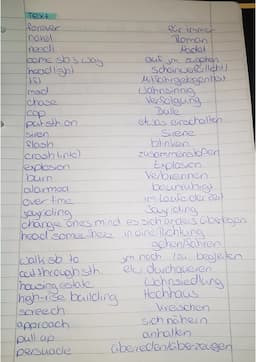 Text
forever für immer
novel Roman
need!
come sb's way auf jm zugehen
headlight Scheinwerfer(licht)
lift Mitfahrgelegenheit
mad wahnsinnig
chase Verfolgung
cop Bulle
put sth on etwas einschalten
siren Sirene
flash blinken
crash (into) zusammenstoßen
explosion Explosion
burn verbrennen
alarmed beunruhigt
over time im Laufe der Zeit
joyriding Joyriding
change one's mind es sich anders überlegen
head somewhere in eine Richtung
gehen/fahren
walk sb to jm nach / zu begleiten
cut through sth. etw. durchqueren
housing estate Wohnsiedlung
high-rise building Hochhaus
screech kreischen
approach sich nähern
pull up anhalten
persuade überreden/überzeugen